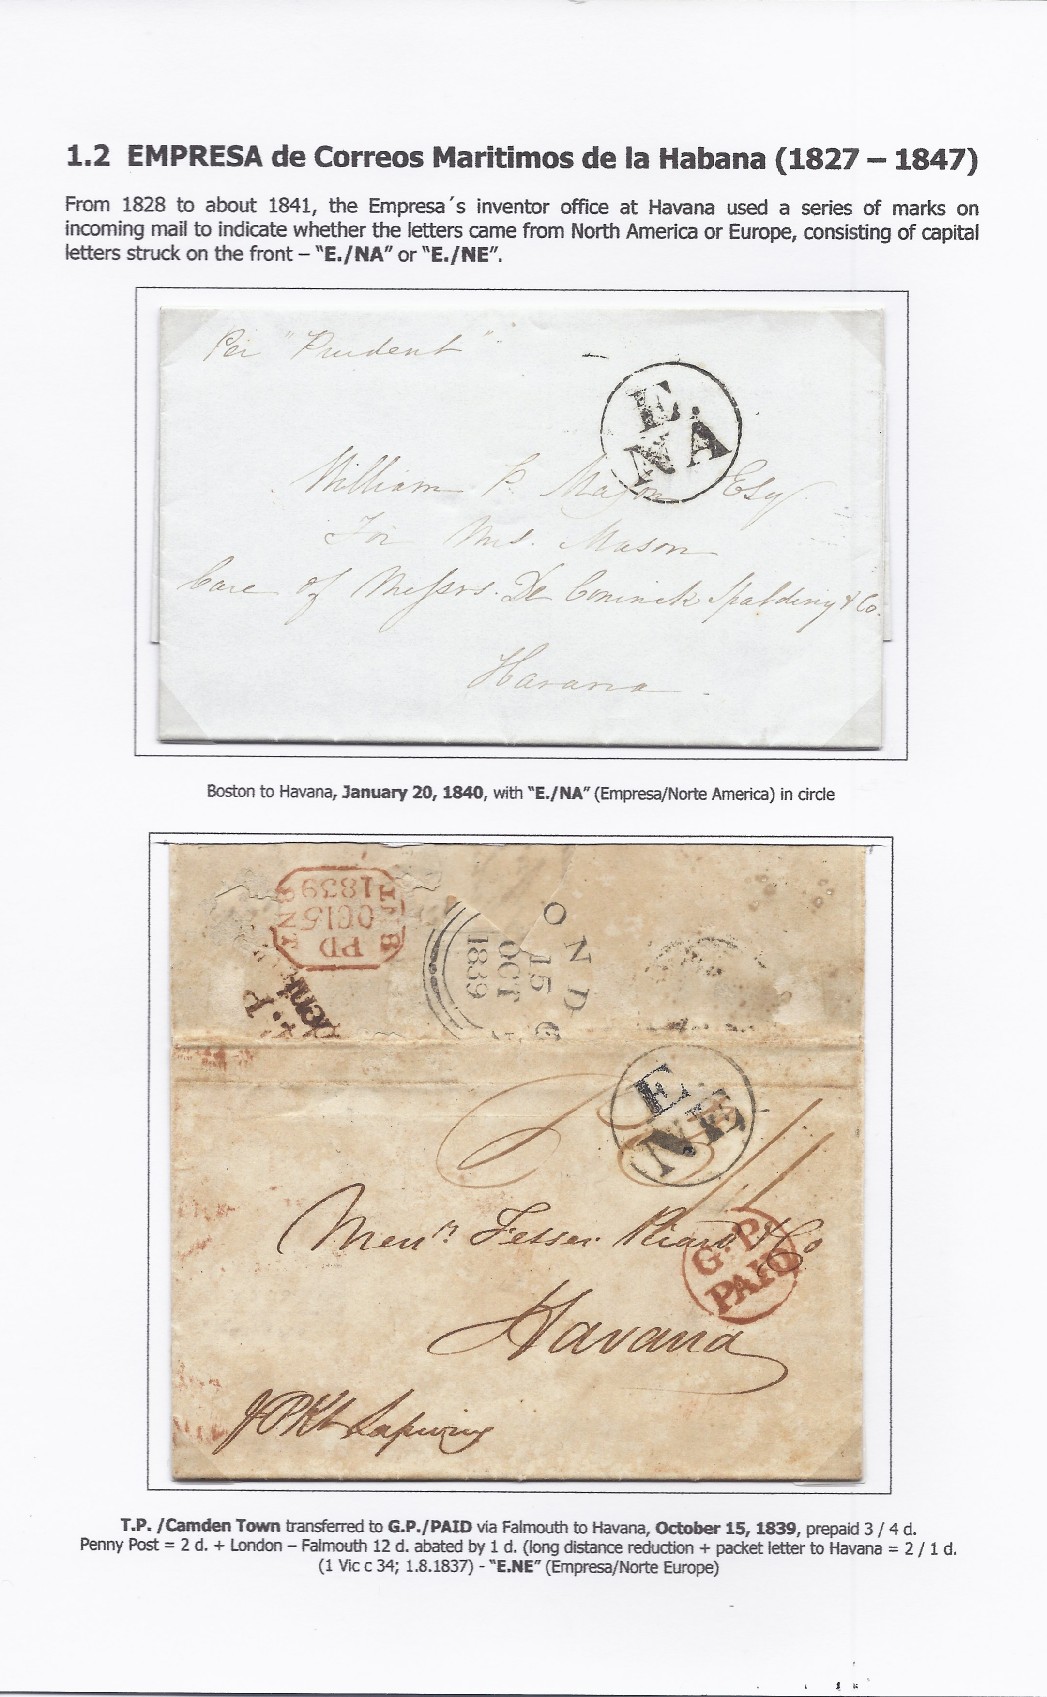 1.2 EMPRESA de Correos Maritimos de la Habana (1827 – 1847)
From 1828 to about 1841, the Empresa´s inventor office at Havana used a series of marks on
incoming mail to indicate whether the letters came from North America or Europe, consisting of capital
letters struck on the front – "E./NA" or "E./NE".
Per "Prudent"
E.
NA
William P. Mason Esqr
For Mrs. Mason
Care of Messrs. De Coninck Spalding & Co.
Havana
Boston to Havana, January 20, 1840, with "E./NA" (Empresa/Norte America) in circle
1839
OC15
PD
OND
15
OCT
1839
T.P
E
NE
Fesser & Co
G.P.
PAID
Havana
T.P. /Camden Town transferred to G.P./PAID via Falmouth to Havana, October 15, 1839, prepaid 3 / 4 d.
Penny Post = 2 d. + London – Falmouth 12 d. abated by 1 d. (long distance reduction + packet letter to Havana = 2 / 1 d.
(1 Vic c 34; 1.8.1837) - "E.NE" (Empresa/Norte Europe)